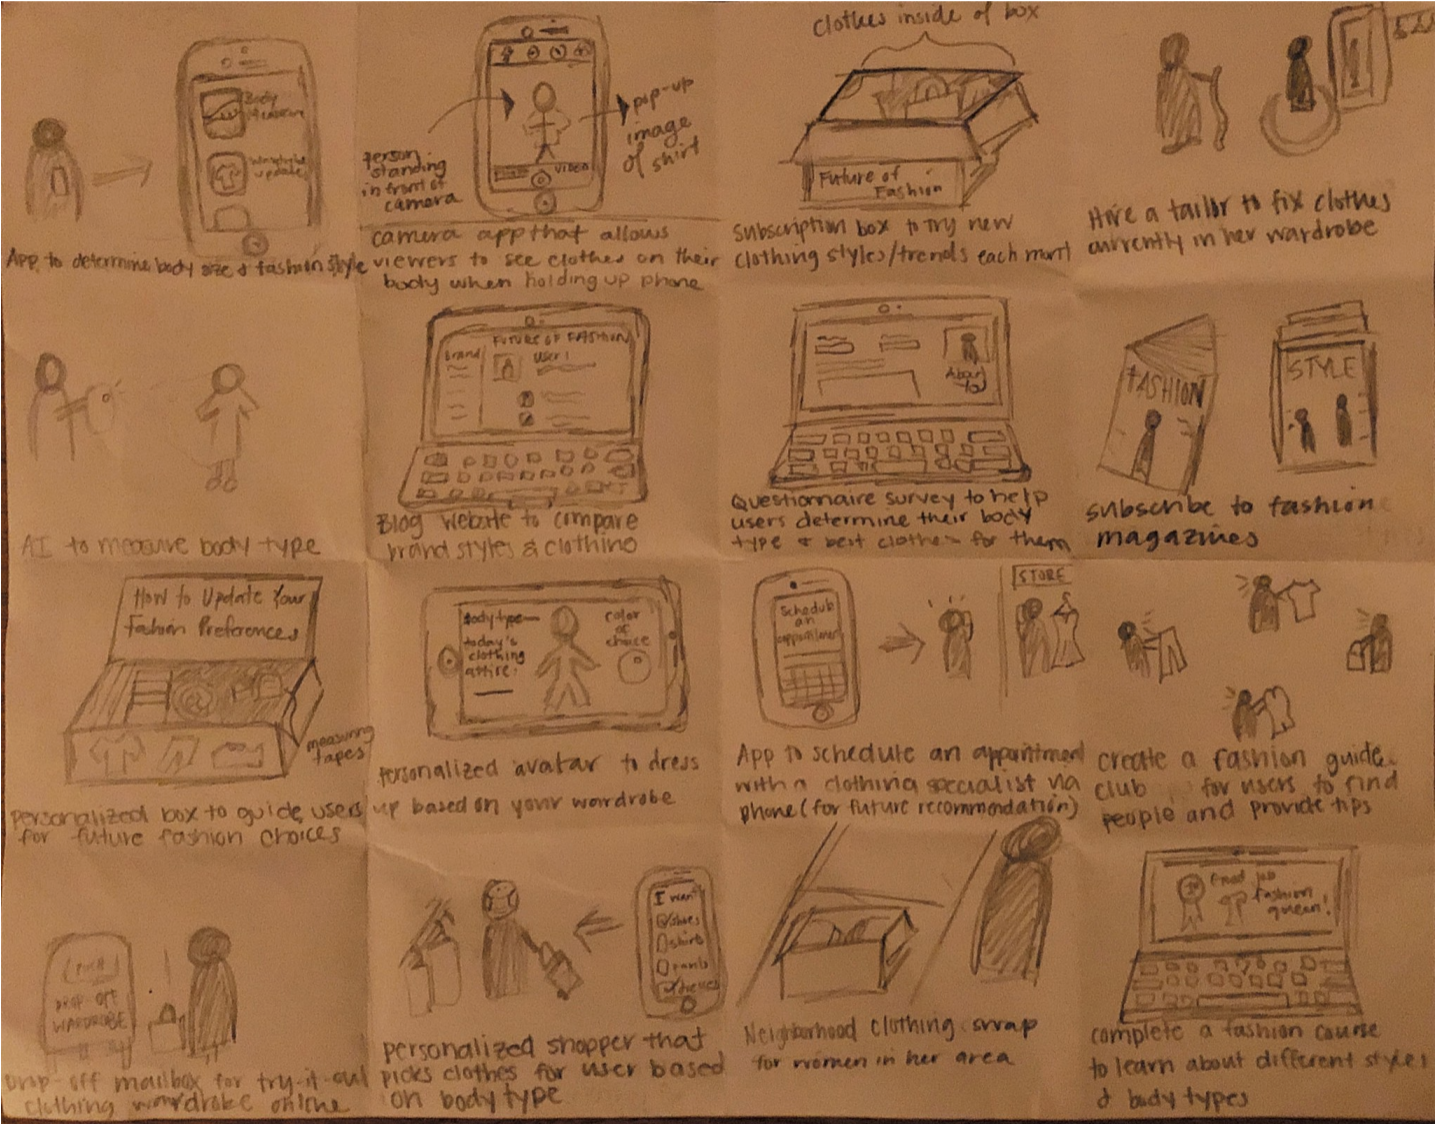 Body
Measure
update
App to determine body size & fashion style
person
standing
in front of
camera
pop-up
image
of shirt
VIDEO
camera app that allows
viewers to see clothes on their
body when holding up phone
clothes inside of box
Future of
Fashion
subscription box to try new
clothing styles/trends each mont
Hire a tailor to fix clothes
currently in her wardrobe
AI to measure body type
FUTURE OF FASHION
Brand
User!
Blog website to compare
brand styles & clothing
About
You
Questionnaire survey to help
users determine their body
type & best clothes for them
FASHION
STYLE
subscribe to fashion
magazines
How to Update Your
Fashion Preferences
measuring
tapes
personalized box to guide users
for future fashion choices
Body type—
today's
clothing
attire:
color
of
choice
personalized avatar to dress
up based on your wardrobe
Schedule
an
appointment
STORE
App to schedule an appointment
with a clothing specialist via
phone (for future recommendation)
create a fashion guide
club for users to find
people and provide tips
DROP OFF
WARDROBE
Drop-off mailbox for try-it-out
clothing wardrobe online
I want
shoes
shirts
pants
dresses
personalized shopper that
picks clothes for user based
on body type
Neighborhood clothing swap
for women in her area
Good job
fashion
queen!
complete a fashion course
to learn about different styles
& body types